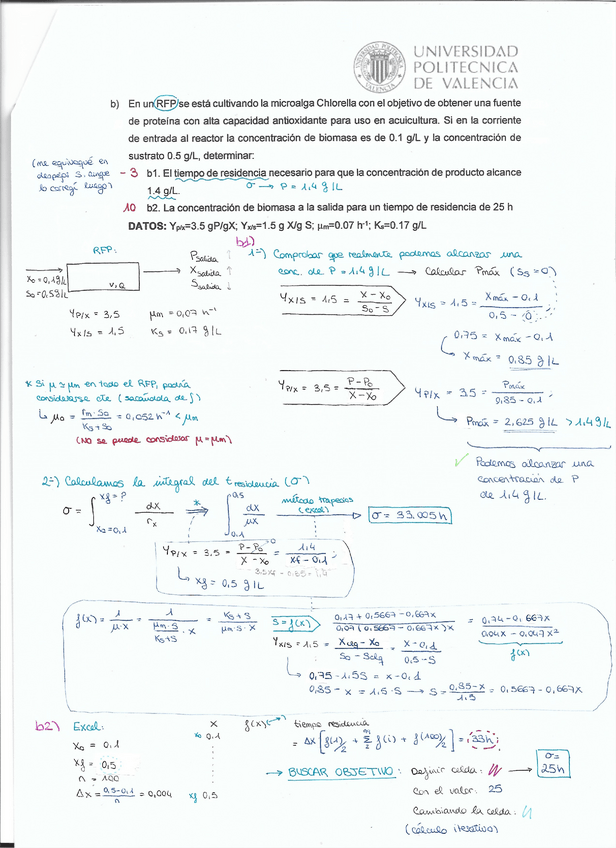 UNIVERSIDAD
POLITECNICA
DE VALENCIA
b) En un RFP se está cultivando la microalga Chlorella con el objetivo de obtener una fuente
de proteína con alta capacidad antioxidante para uso en acuicultura. Si en la corriente
de entrada al reactor la concentración de biomasa es de 0.1 g/L y la concentración de
sustrato 0.5 g/L, determinar:
(me equivoqué en
despejar S, aunque
lo corregí luego)
- 3 b1. El tiempo de residencia necesario para que la concentración de producto alcance
1.4 g/L. σ → P = 1,4 g/L
10 b2. La concentración de biomasa a la salida para un tiempo de residencia de 25 h
DATOS: Yp/x=3.5 gP/gX; Yx/s=1.5 g X/g S; μm=0.07 h⁻¹; Ks=0.17 g/L
RFP:
X₀ = 0,1 g/L
S₀ = 0,5 g/L
V, Q
Psalida ↑
Xsalida ↑
Ssalida ↓
YP/X = 3,5 μm = 0,07 h⁻¹
YX/S = 1,5 KS = 0.17 g/L
b1)
1º) Comprobar que realmente podemos alcanzar una
conc. de P = 1,4 g/L → Calcular Pmáx (Ss = 0)
YX/S = 1,5 = (X - X₀)/(S₀ - S)
YX/S = 1,5 = (Xmáx - 0,1)/(0,5 - 0)
0,75 = Xmáx - 0,1
Xmáx = 0,85 g/L
* Si μ ≃ μm en todo el RFP, podría
considerarse cte (sacándola de ∫)
↳ μ₀ = μm·S₀/(KS + S₀) = 0,052 h⁻¹ < μm
(No se puede considerar μ = μm)
YP/X = 3,5 = (P - P₀)/(X - X₀)
YP/X = 3.5 = Pmáx/(0,85 - 0,1)
Pmáx = 2,625 g/L > 1,4 g/L
✓ Podemos alcanzar una
concentración de P
de 1,4 g/L.
2º) Calculamos la integral del t residencia (σ)
σ = ∫ dx/rx ⇒ ∫ dx/μx método trapecios (excel) → σ = 33.005 h
Xf = P
X₀ = 0,1
0,5
0.1
YP/X = 3.5 = (P - P₀)/(X - X₀) = 1,4/(Xf - 0,1)
↳ Xf = 0,5 g/L
f(x) = 1/(μ·X) = 1/((μm·S/(KS+S))·X) = (KS + S)/(μm·S·X) S = f(x) (0,17 + 0,5667 - 0,667x)/(0.07 (0.5667 - 0,667x)x) = (0,74 - 0,667x)/(0.04x - 0,047x²)
f(x)
YX/S = 1,5 = (Xalg - X₀)/(S₀ - Salg) = (X - 0,1)/(0,5 - S)
→ 0,75 - 1,5S = x - 0,1
0,85 - x = 1,5·S → S = (0,85 - x)/1,5 = 0,5667 - 0,667x
b2) Excel:
X₀ = 0.1
Xf = 0,5
n = 100
Δx = (0,5 - 0,1)/n = 0,004
X f(x)
X₀ 0.1
Xf 0,5
tiempo residencia
= Δx [f(1)/2 + Σ f(i) + f(100)/2] = 33h
→ BUSCAR OBJETIVO: Definir celda:
Con el valor: 25
Cambiando la celda:
(cálculo iterativo)
→ σ = 25h